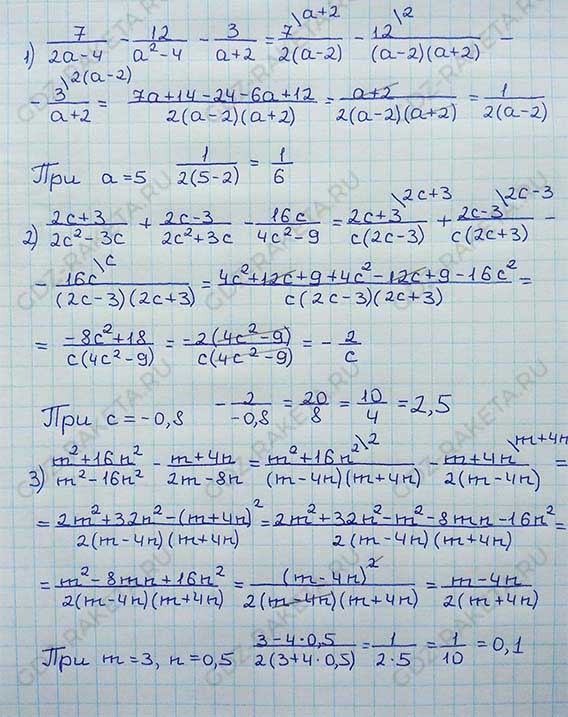 1) 7/(2a-4) - 12/(a²-4) - 3/(a+2) = 7\a+2/(2(a-2)) - 12\2/((a-2)(a+2)) -
- 3\2(a-2)/(a+2) = (7a+14-24-6a+12)/(2(a-2)(a+2)) = (a+2)/(2(a-2)(a+2)) = 1/(2(a-2))
При a=5 1/(2(5-2)) = 1/6
2) (2c+3)/(2c²-3c) + (2c-3)/(2c²+3c) - 16c/(4c²-9) = (2c+3)\2c+3/(c(2c-3)) + (2c-3)\2c-3/(c(2c+3)) -
- 16c\c/((2c-3)(2c+3)) = (4c²+12c+9+4c²-12c+9-16c²)/(c(2c-3)(2c+3)) =
= (-8c²+18)/(c(4c²-9)) = -2(4c²-9)/(c(4c²-9)) = - 2/c
При c=-0,8 - 2/(-0,8) = 20/8 = 10/4 = 2,5
3) (m²+16n²)/(m²-16n²) - (m+4n)/(2m-8n) = (m²+16n²)\2/((m-4n)(m+4n)) - (m+4n)\m+4n/(2(m-4n)) =
= (2m²+32n²-(m+4n)²)/(2(m-4n)(m+4n)) = (2m²+32n²-m²-8mn-16n²)/(2(m-4n)(m+4n)) =
= (m²-8mn+16n²)/(2(m-4n)(m+4n)) = (m-4n)²/(2(m-4n)(m+4n)) = (m-4n)/(2(m+4n))
При m=3, n=0,5 (3-4·0,5)/(2(3+4·0,5)) = 1/(2·5) = 1/10 = 0,1
GDZ-RAKETA.RU